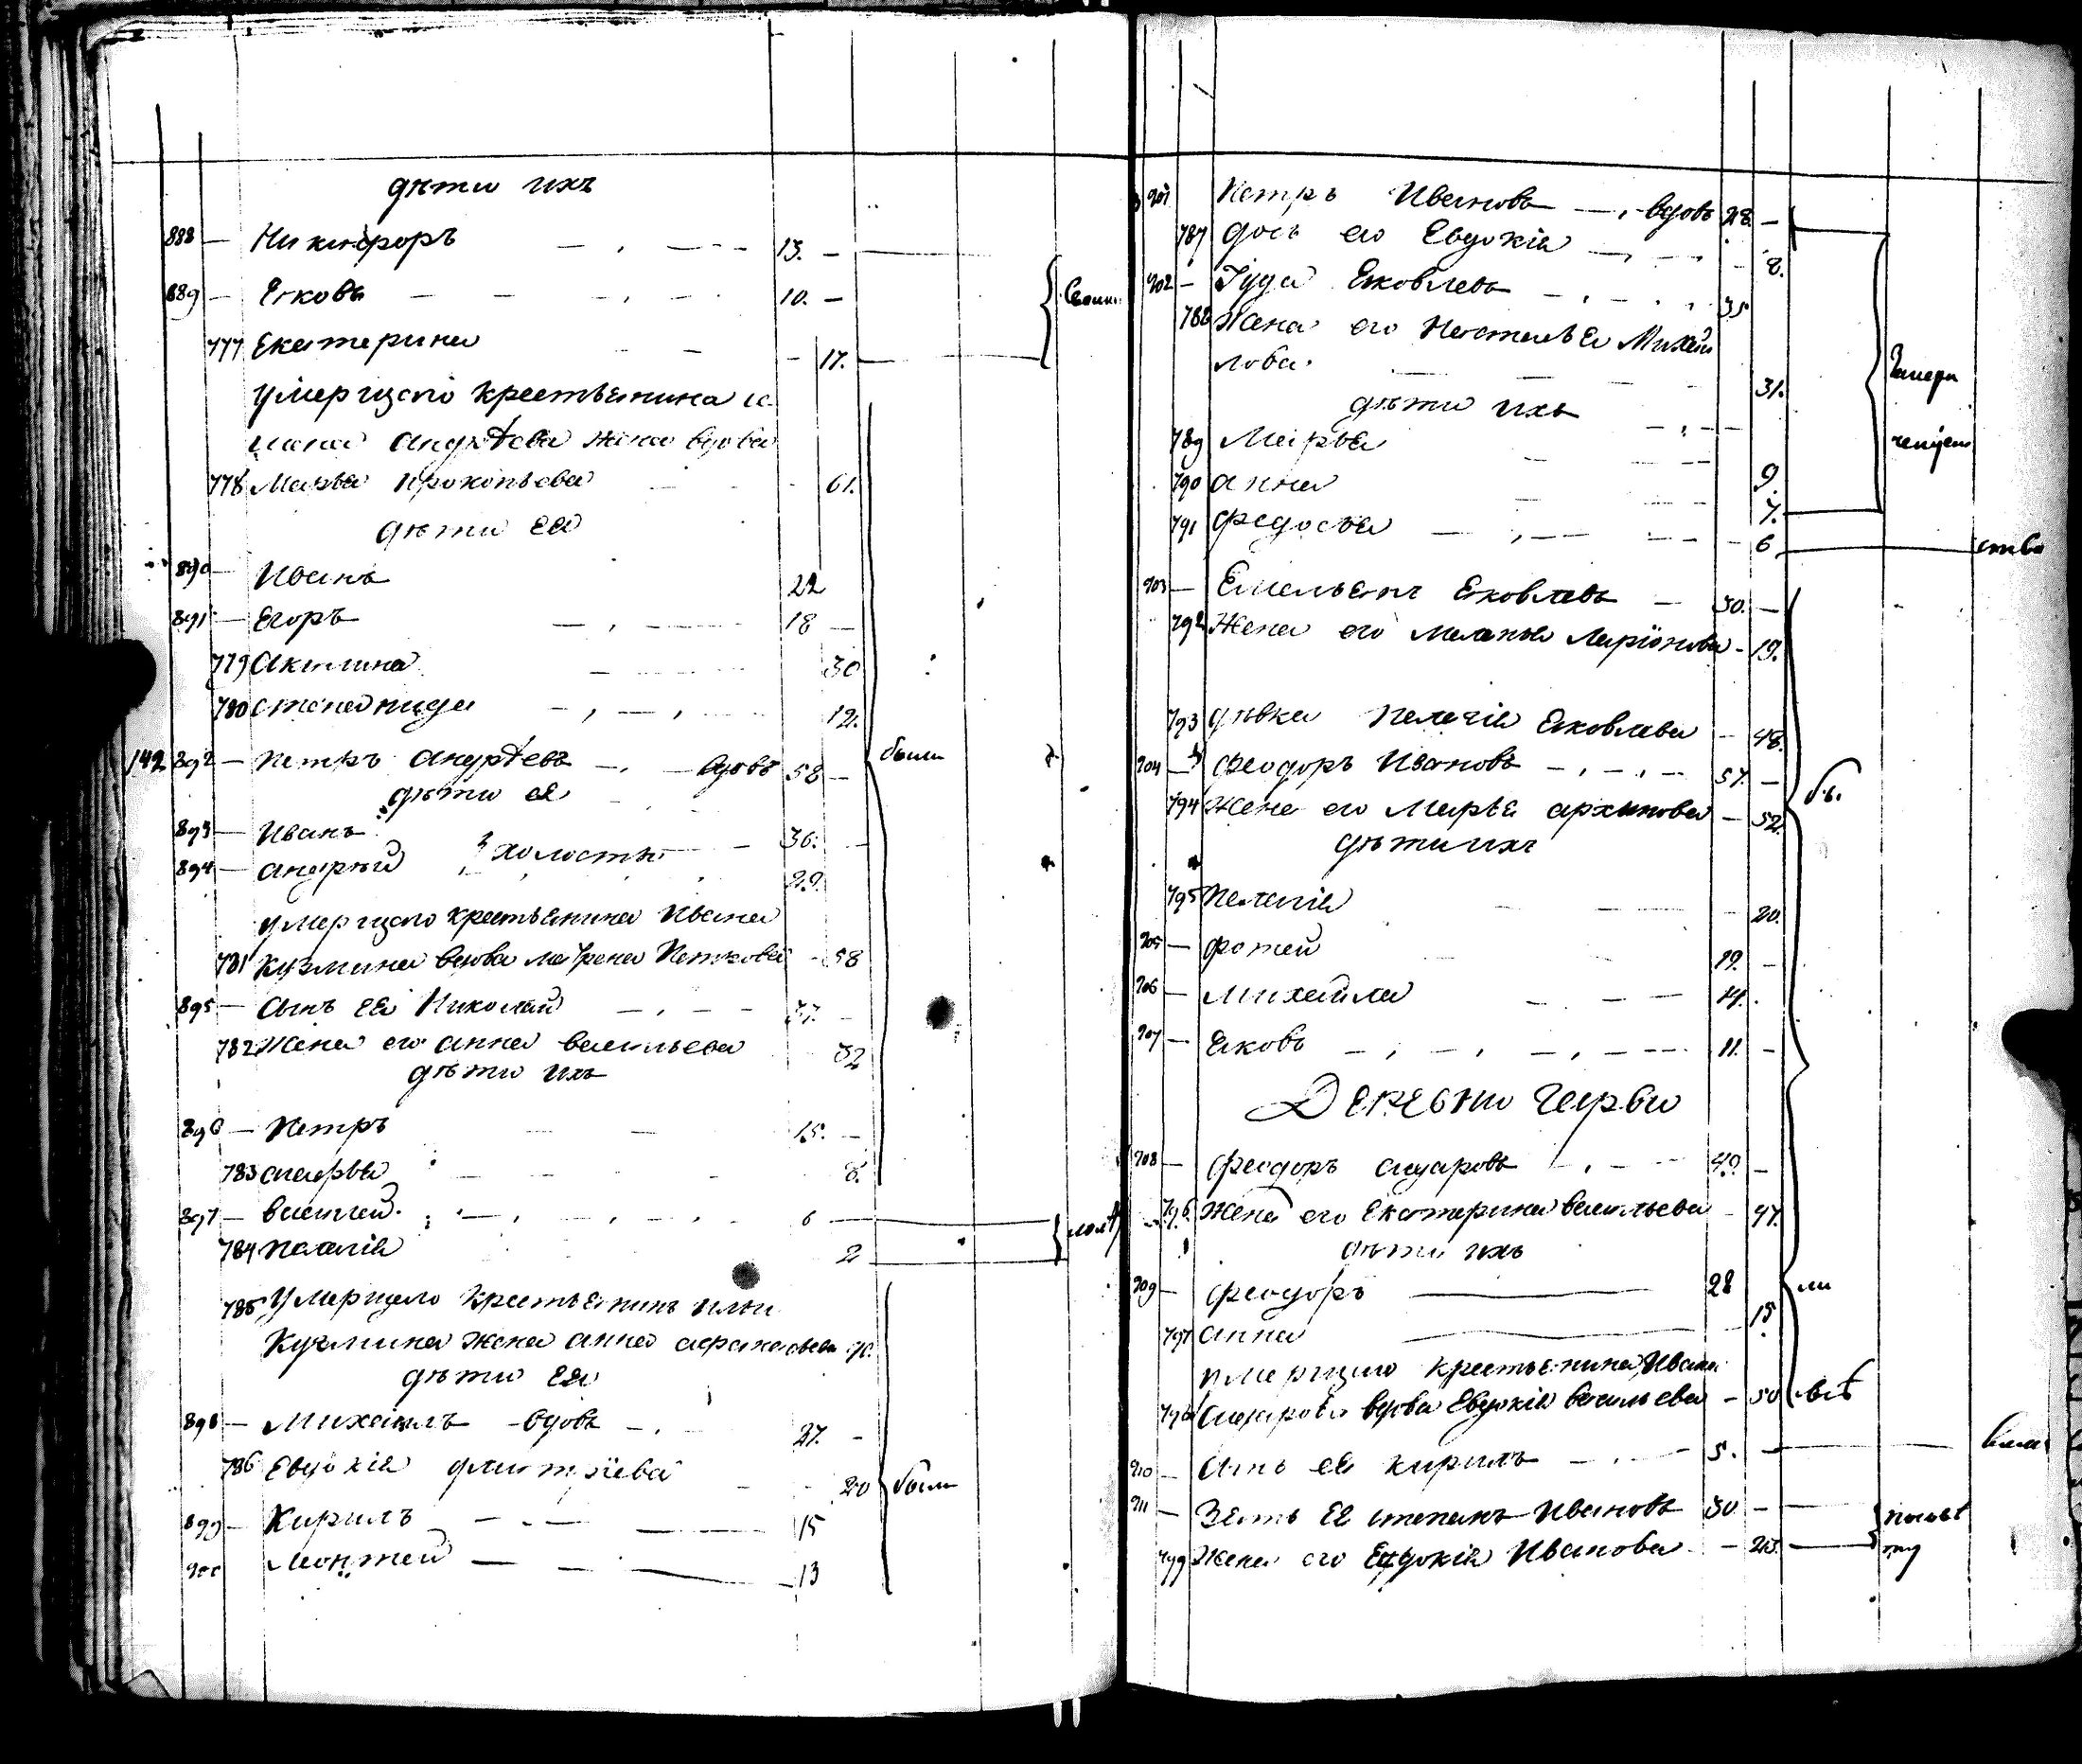 дѣти ихъ
888 — Никифоръ — 13. —
889 — Ѧковъ — 10. —
777 Екатерина — 17.
умершего крестьѧнина
андрѣева жена вдова
778 Марьѧ прокопьева 61.
дѣти еѧ
890 — Иванъ 22
891 — Егоръ — 18 —
779 Акилина — 30
780 степанида — 12.
142 892 — петръ андрѣевъ — вдовъ 58 — были
дѣти ея
893 — Иванъ 36. —
894 — андрѣй } холосты 29.
умершего крестьѧнина Ивана
781 Кузмина вдова 58
895 — сынъ еѧ Николай — 37. —
782 Жена его анна васильева 32
дѣти ихъ
896 — петръ — 15. —
783 марьѧ — 8.
897 — василей — 6 —
784 пелагіѧ 2
785 умершего крестьѧнина ильи
Кузмина жена анна афанасьева
дѣти еѧ
898 — Михаилъ — вдовъ — 27. —
786 Евдокіѧ дмитріева — 20 были
899 — Кирилъ — 15
900 Леонтей — 13
901 петръ Ивановъ — вдовъ 28 —
787 дочь его Евдокіѧ — 8.
902 — Іуда Ѧковлевъ — 35
788 Жена его Настасьѧ Михаи
лова — 31.
дѣти ихъ
789 Марьѧ — 9.
790 анна — 7.
791 федосьѧ — 6
903 — Емельѧнъ Ѧковлевъ — 30. —
792 Жена его Маланьѧ Ларіонова — 19.
793 дѣвка пелагіѧ Ѧковлева — 48.
904 — феодоръ Ивановъ — 57. —
794 Жена его Марьѧ архипова — 52.
дѣти ихъ
795 пелагіѧ — 20.
905 — фотей 19. —
906 — михайла — 14.
907 — Ѧковъ — 11. —
Деревни Гарви
908 — феодоръ — 49. —
796 Жена его Екатерина васильева — 47.
дѣти ихъ
909 — феодоръ — 28 ли
797 анна — 15
умершего крестьѧнина Ивана
798 вдова Евдокіѧ васильева — 50
910 — сынъ еѧ кирилъ — 5. —
911 — Зѧть еѧ степанъ Ивановъ 30 —
799 Жена его Евдокіѧ Иванова —